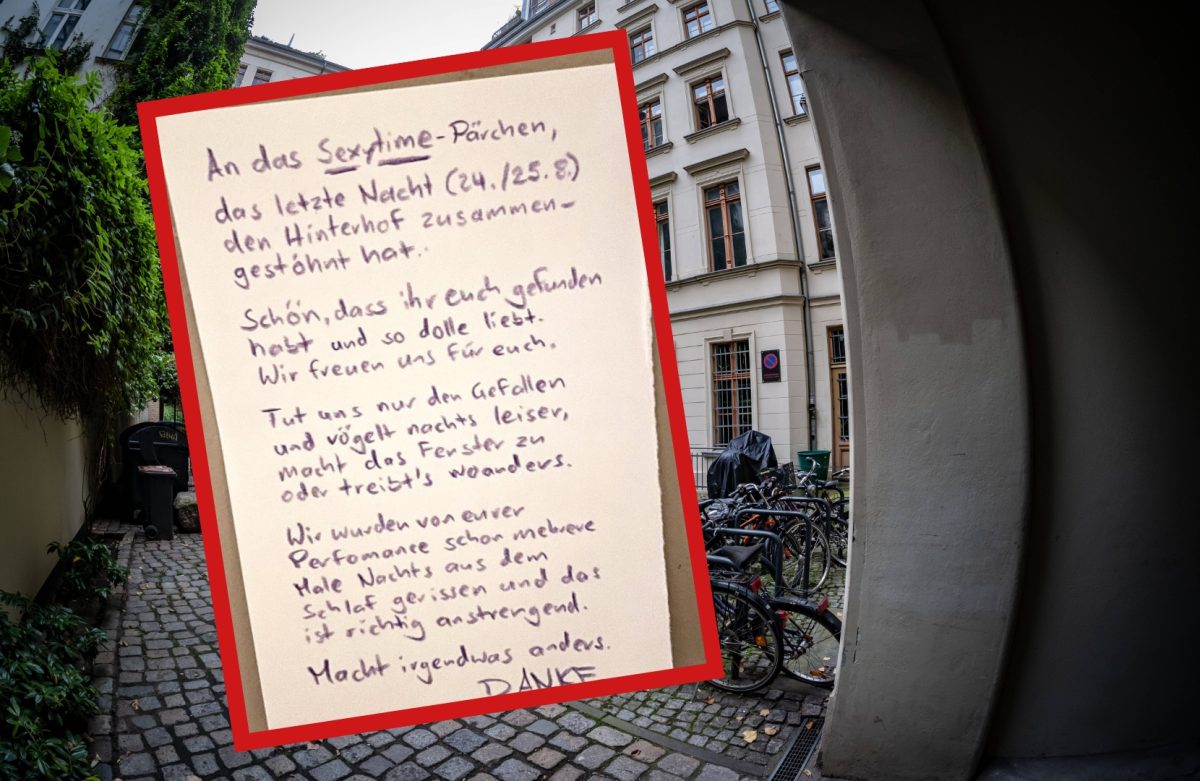 An das Sexytime-Pärchen,
das letzte Nacht (24./25.8.)
den Hinterhof zusammen-
gestöhnt hat.
Schön, dass ihr euch gefunden
habt und so dolle liebt.
Wir freuen uns für euch.
Tut uns nur den Gefallen
und vögelt nachts leiser,
macht das Fenster zu
oder treibt's woanders.
Wir wurden von eurer
Perfomance schon mehrere
Male Nachts aus dem
Schlaf gerissen und das
ist richtig anstrengend.
Macht irgendwas anders.
DANKE